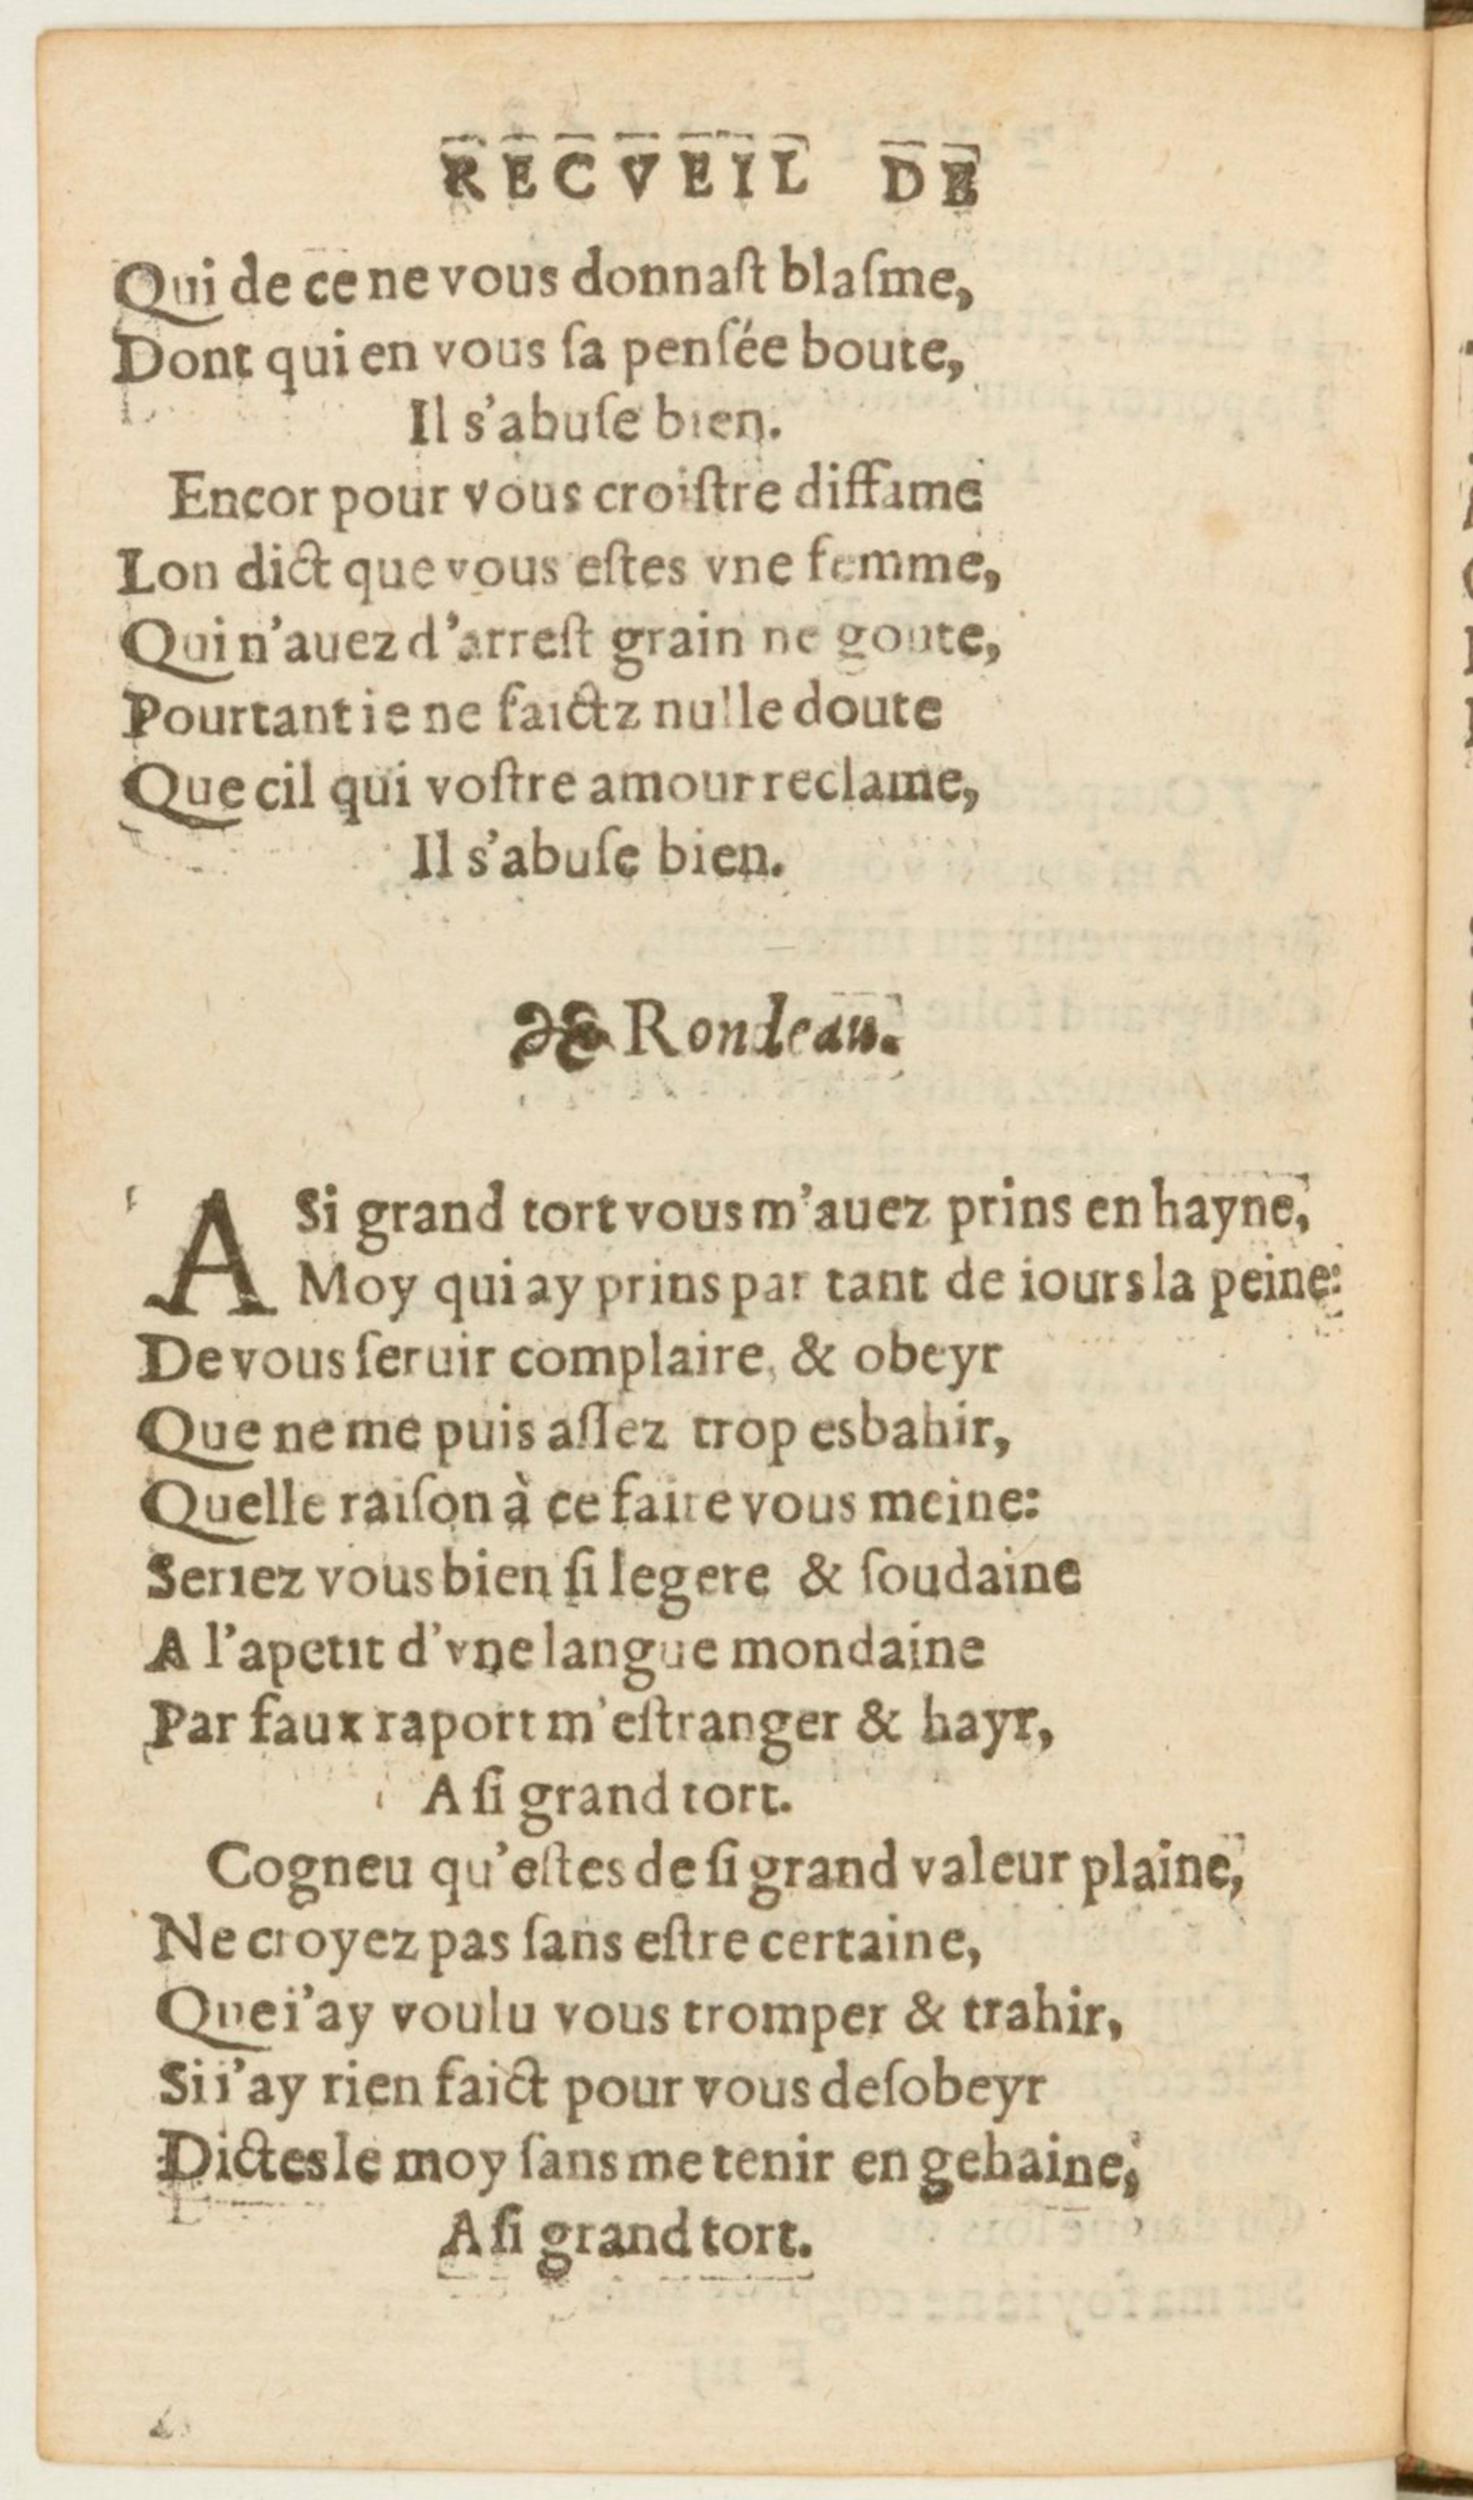 RECVEIL DE
Qui de ce ne vous donnaſt blaſme,
Dont qui en vous ſa penſée boute,
Il s'abuſe bien.
Encor pour vous croiſtre diffame
Lon dict que vous eſtes vne femme,
Qui n'auez d'arreſt grain ne goute,
Pourtant ie ne faictz nulle doute
Que cil qui voſtre amour reclame,
Il s'abuſe bien.
Rondeau.
A Si grand tort vous m'auez prins en hayne,
Moy qui ay prins par tant de iours la peine:
De vous ſeruir complaire, & obeyr
Que ne me puis aſſez trop esbahir,
Quelle raiſon à ce faire vous meine:
Seriez vous bien ſi legere & ſoudaine
A l'apetit d'vne langue mondaine
Par faux raport m'eſtranger & hayr,
A ſi grand tort.
Cogneu qu'eſtes de ſi grand valeur plaine,
Ne croyez pas ſans eſtre certaine,
Que i'ay voulu vous tromper & trahir,
Si i'ay rien faict pour vous deſobeyr
Dictes le moy ſans me tenir en gehaine,
A ſi grand tort.